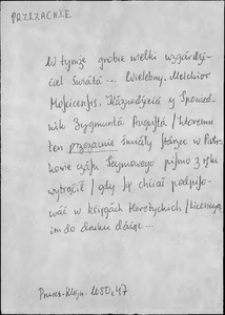 PRZEZACNIE
W tymże grobie wielki wzgárdzi-
ciel Świátá ... Wielebny Melchior
Mościcensis, Káznodzieiá y Spowied-
nik Zygmuntá Augustá / ktoremu
ten przezacnie śmiáły stárzec w Piotr-
kowie czásu Seymowego pismo z ręki
wytrącił / gdy się chciał podpiso-
wáć w księgách Heretyckich /
im do druku dáiąc ...
Pruszcz. Klejn. 1650 s 47